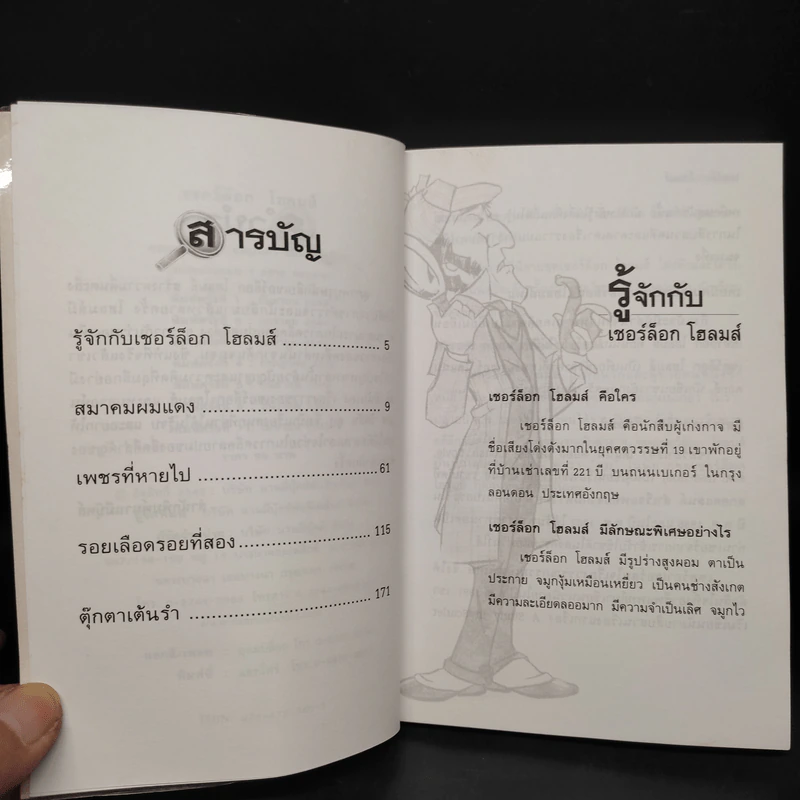 สารบัญ
รู้จักกับเชอร์ล็อก โฮลมส์ ..................... 5
สมาคมผมแดง ................................... 9
เพชรที่หายไป ................................... 61
รอยเลือดรอยที่สอง.......................... 115
ตุ๊กตาเต้นรำ ................................... 171
รู้จักกับ
เชอร์ล็อก โฮลมส์
เชอร์ล็อก โฮลมส์ คือใคร
เชอร์ล็อก โฮลมส์ คือนักสืบผู้เก่งกาจ มี
ชื่อเสียงโด่งดังมากในยุคศตวรรษที่ 19 เขาพักอยู่
ที่บ้านเช่าเลขที่ 221 บี บนถนนเบเกอร์ ในกรุง
ลอนดอน ประเทศอังกฤษ
เชอร์ล็อก โฮลมส์ มีลักษณะพิเศษอย่างไร
เชอร์ล็อก โฮลมส์ มีรูปร่างสูงผอม ตาเป็น
ประกาย จมูกงุ้มเหมือนเหยี่ยว เป็นคนช่างสังเกต
มีความละเอียดลออมาก มีความจำเป็นเลิศ จมูกไว